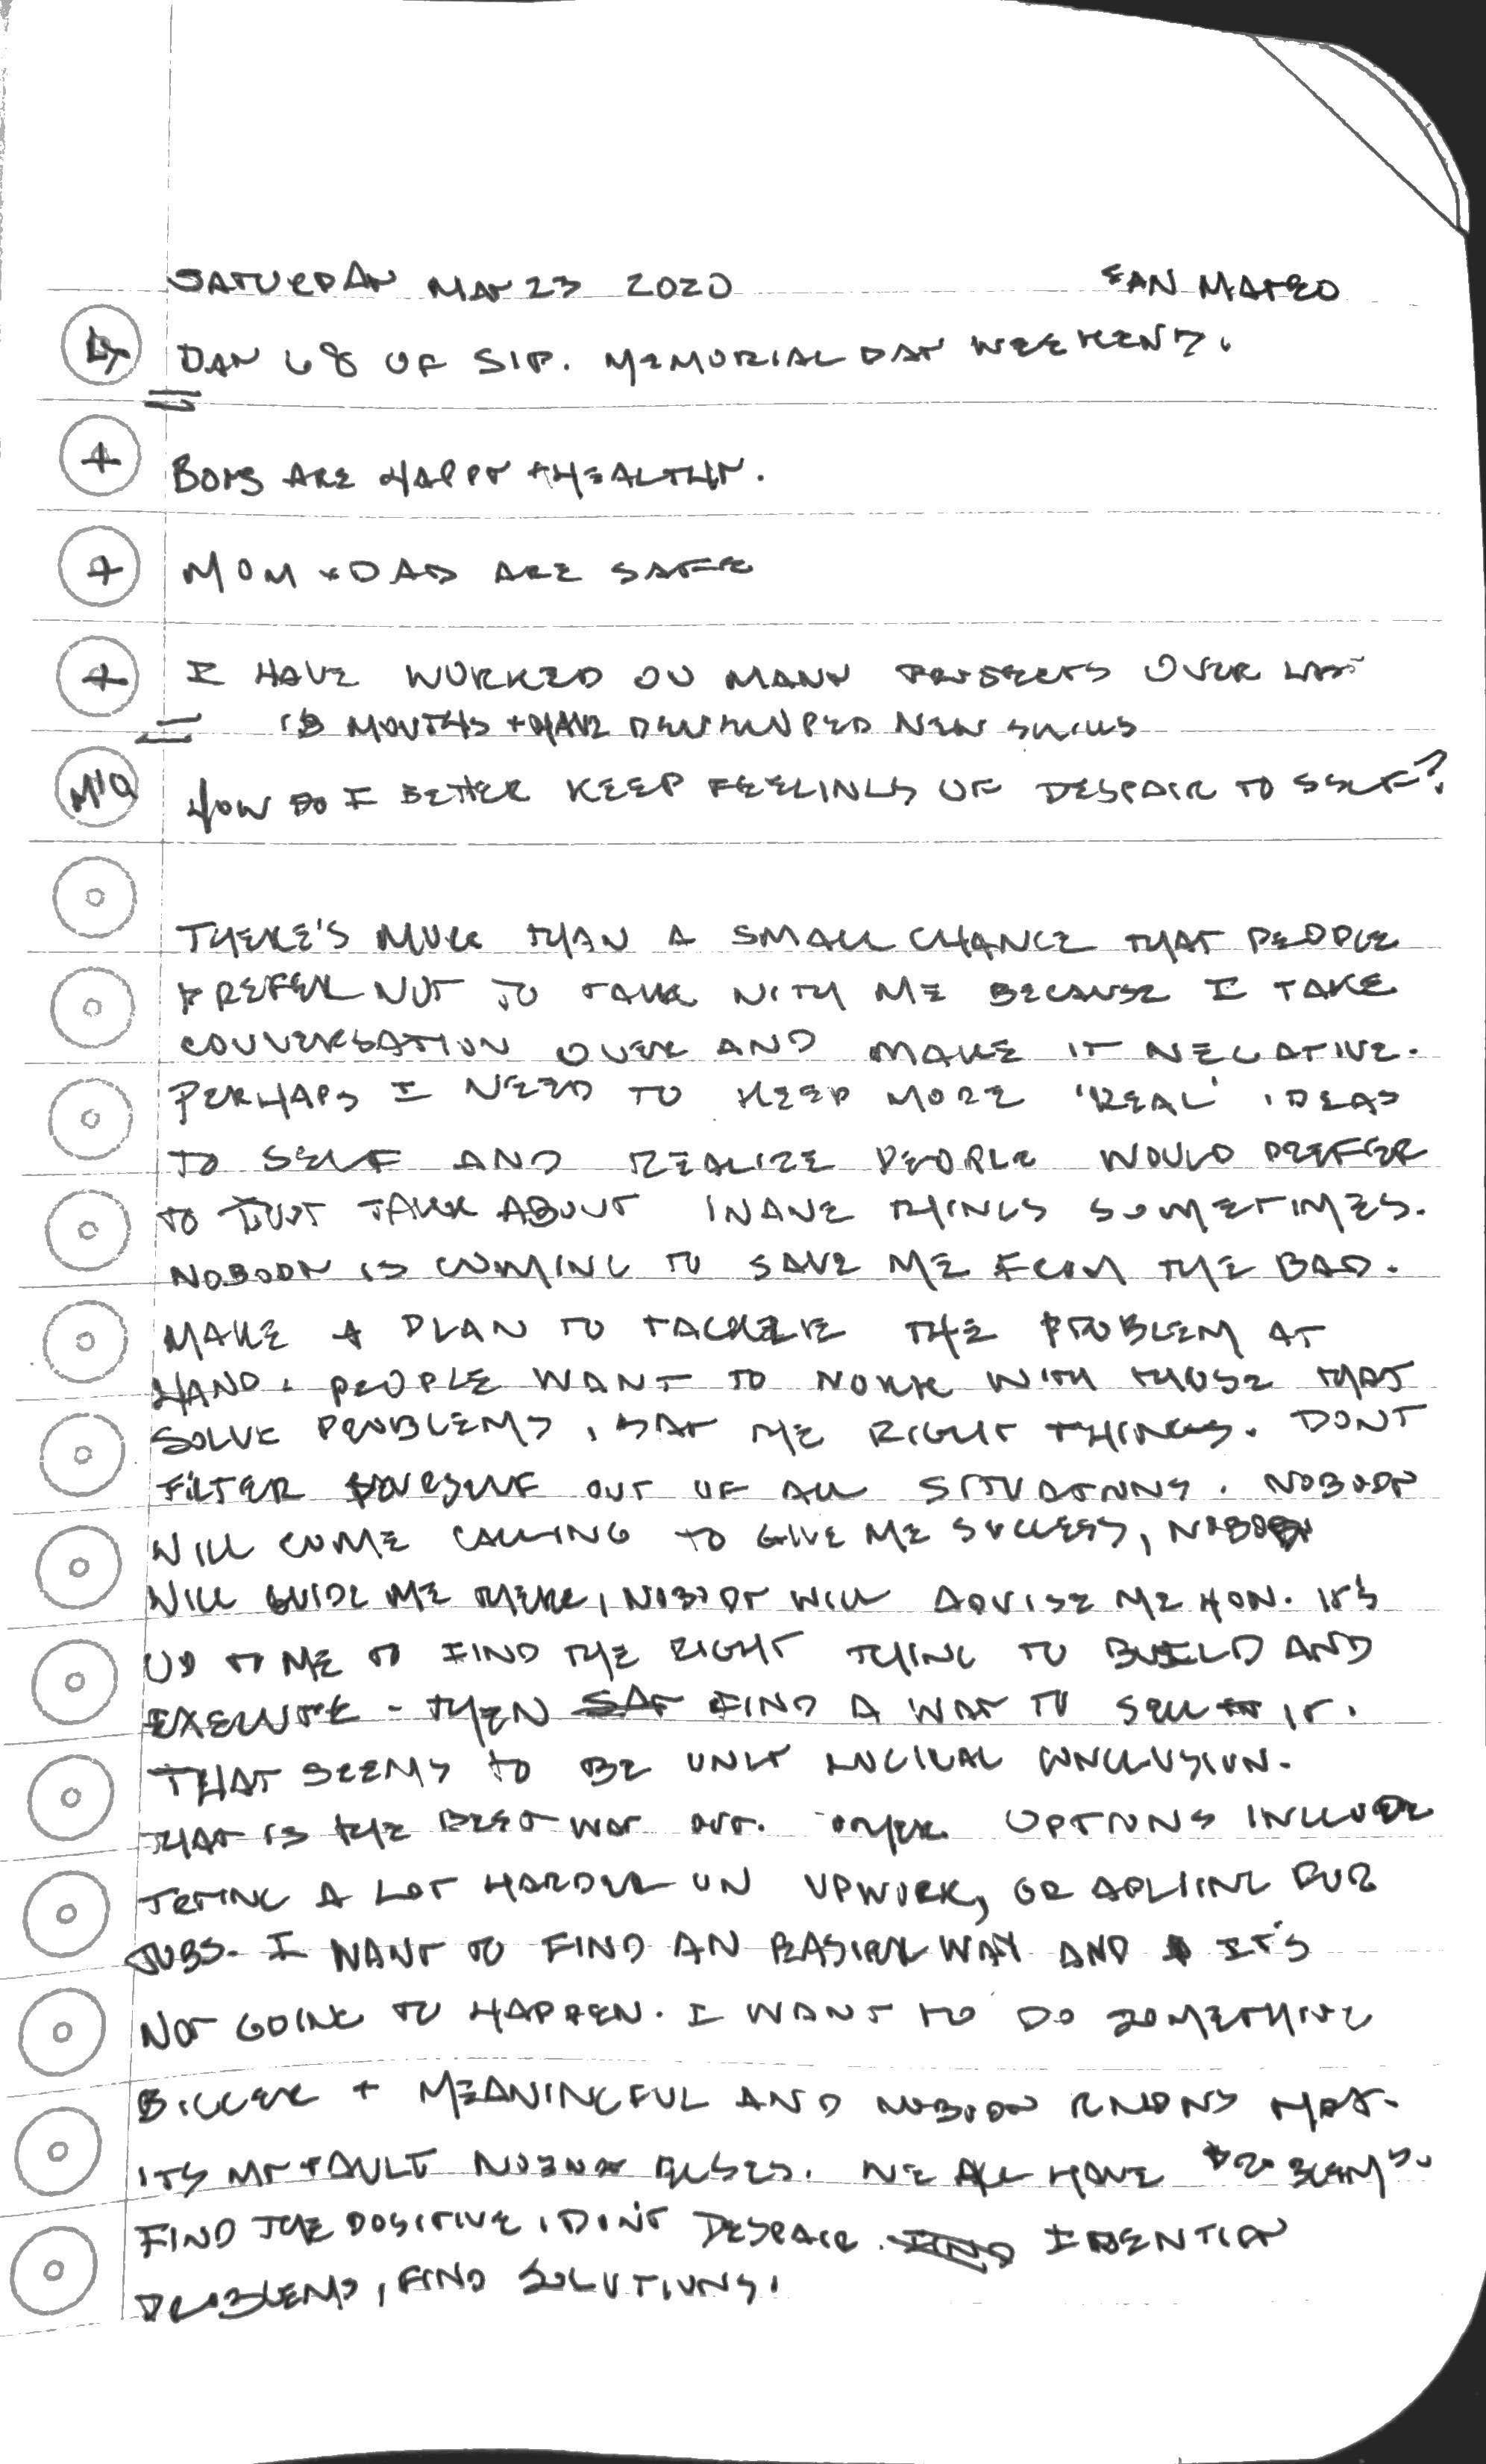 SATURDAY MAY 23 2020 SAN MATEO
DAY 68 OF SIP. MEMORIAL DAY WEEKEND.
+ BOYS ARE HAPPY + HEALTHY.
+ MOM + DAD ARE SAFE
+ I HAVE WORKED ON MANY PROJECTS OVER LAST
18 MONTHS + HAVE DEVELOPED NEW SKILLS
MIQ HOW DO I BETTER KEEP FEELINGS OF DESPAIR TO SELF?
THERE'S MORE THAN A SMALL CHANCE THAT PEOPLE
PREFER NOT TO TALK WITH ME BECAUSE I TAKE
CONVERSATION OVER AND MAKE IT NEGATIVE.
PERHAPS I NEED TO KEEP MORE 'REAL' IDEAS
TO SELF AND REALIZE PEOPLE WOULD PREFER
TO JUST TALK ABOUT INANE THINGS SOMETIMES.
NOBODY IS COMING TO SAVE ME FROM THE BAD.
MAKE A PLAN TO TACKLE THE PROBLEM AT
HAND. PEOPLE WANT TO WORK WITH THOSE THAT
SOLVE PROBLEMS, SAY THE RIGHT THINGS. DONT
FILTER YOURSELF OUT OF ALL SITUATIONS. NOBODY
WILL COME CALLING TO GIVE ME SUCCESS, NOBODY
WILL GUIDE ME THERE, NOBODY WILL ADVISE ME HOW. IT'S
UP TO ME TO FIND THE RIGHT THING TO BUILD AND
EXECUTE - THEN SAY FIND A WAY TO SELL IT.
THAT SEEMS TO BE ONLY LOGICAL CONCLUSION.
THAT IS THE BEST WAY OUT. OTHER OPTIONS INCLUDE
TRYING A LOT HARDER ON UPWORK, OR APLIING FOR
JOBS. I WANT TO FIND AN EASIER WAY AND IT'S
NOT GOING TO HAPPEN. I WANT TO DO SOMETHING
BIGGER + MEANINGFUL AND NOBODY KNOWS THAT.
ITS MY FAULT NOBODY ELSES. WE ALL HAVE PROBLEMS.
FIND THE POSITIVE, DON'T DESPAIR. FIND IDENTIFY
PROBLEMS, FIND SOLUTIONS.